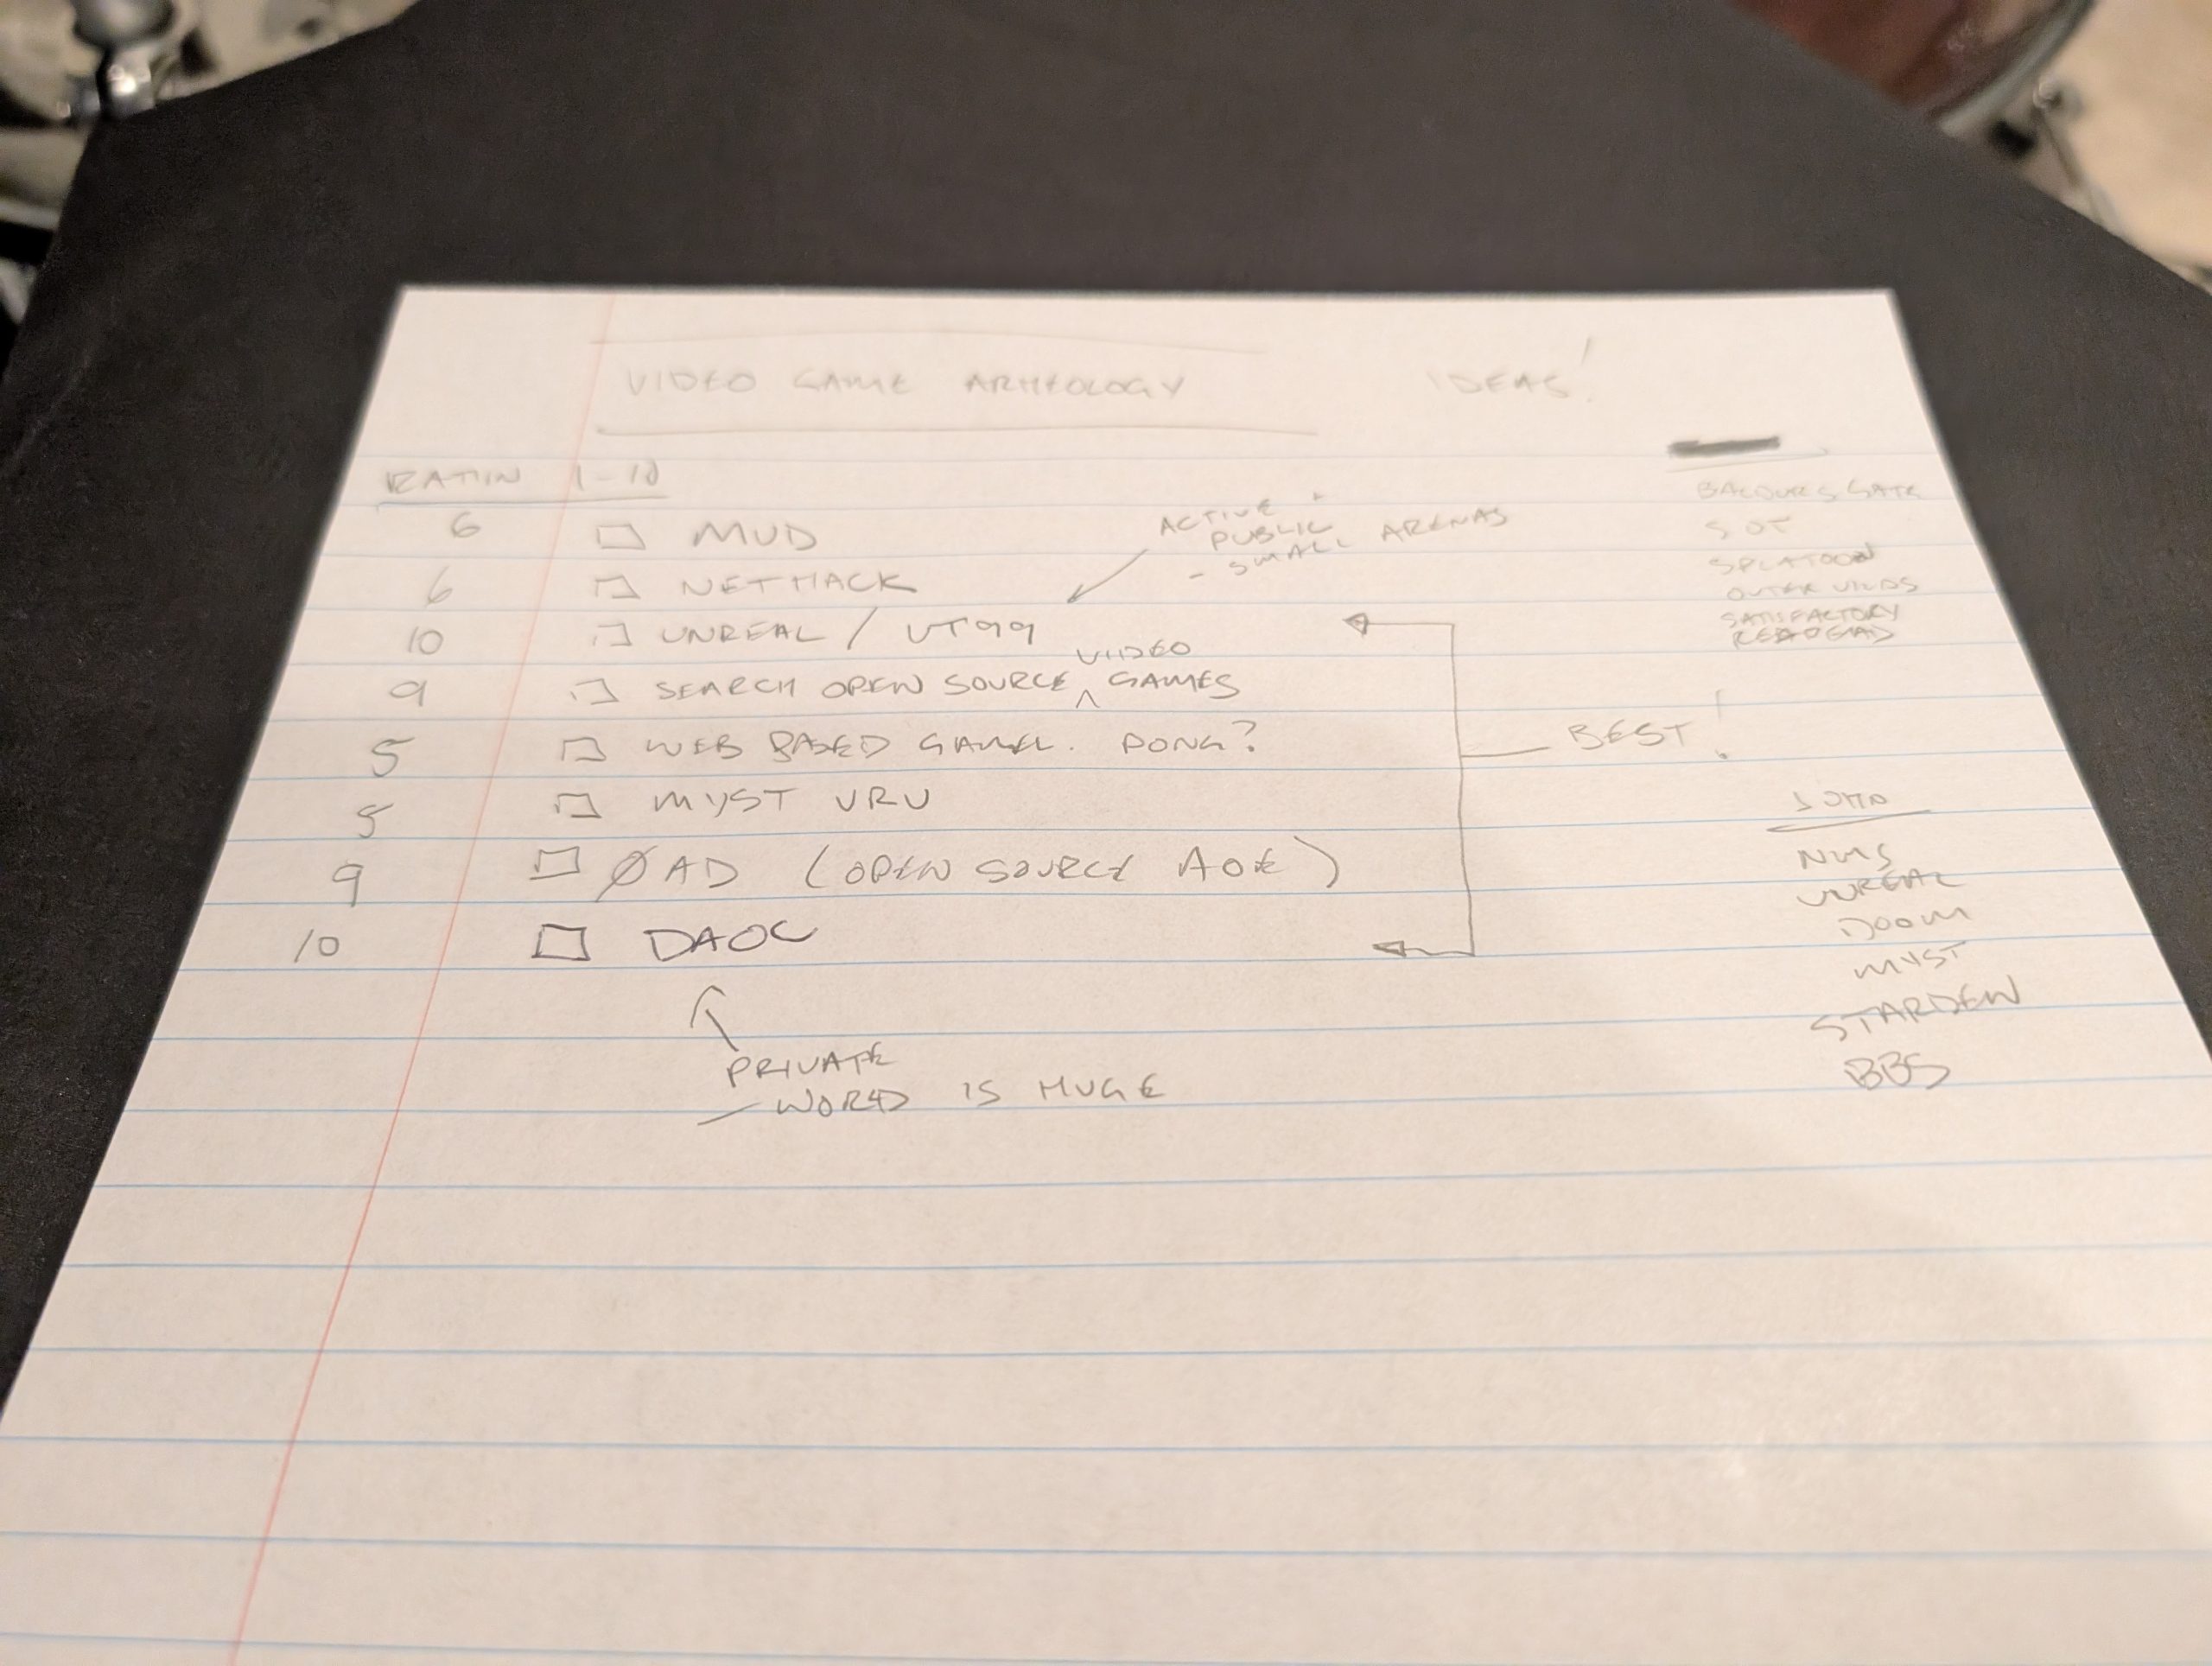 VIDEO GAME ARHEOLOGY IDEAS!
RATIN 1-10
6 MUD
6 NETHACK
10 UNREAL / UT99
ACTIVE +
PUBLIC
- SMALL ARENAS
9 SEARCH OPEN SOURCE ^ VIDEO GAMES
5 WEB BASED GAME. PONG?
5 MYST URU
9 ØAD (OPEN SOURCE AOE)
10 DAOC
PRIVATE
- WORLD IS HUGE
BEST!
BALDURS GATE
SOT
SPLATOON
OUTER WILDS
SATISFACTORY
NMS
UNREAL
DOOM
MYST
STARDEW
BBS